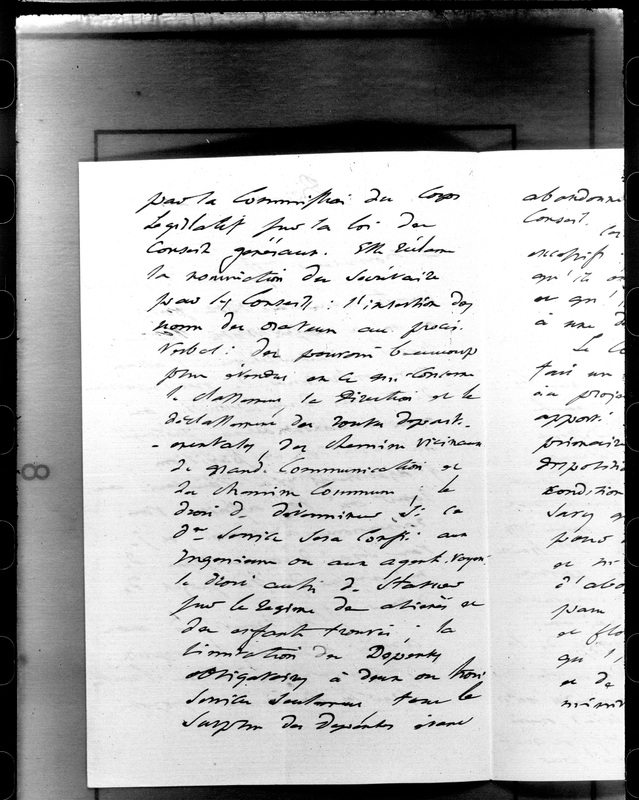 par la Commission du Corps
Législatif sur la loi des
Conseils généraux. Elle réclame
la nomination du Secrétaire
par les Conseils : l'insertion des
noms des orateurs au procès
verbal : des pouvoirs beaucoup
plus étendus en ce qui concerne
le classement la direction et le
déclassement des routes départ-
-ementales, des chemins vicinaux
de grande Communication et
des chemins Communs ; le
droit de déterminer si ce
dr Service sera confié aux
Ingénieurs ou aux agents voyers
le droit aussi de statuer
sur le régime des aliénés et
des enfants trouvés ; la
limitation des Dépenses
obligatoires à deux ou trois
services seulement tout le
surplus des dépenses étant
abandonné
Conseil.
excessifs
qu'ils
et qu'
à une
Le
fait un
au projet
apporté
disposition
condition
pour
et
d'abo
et
qu'
et de